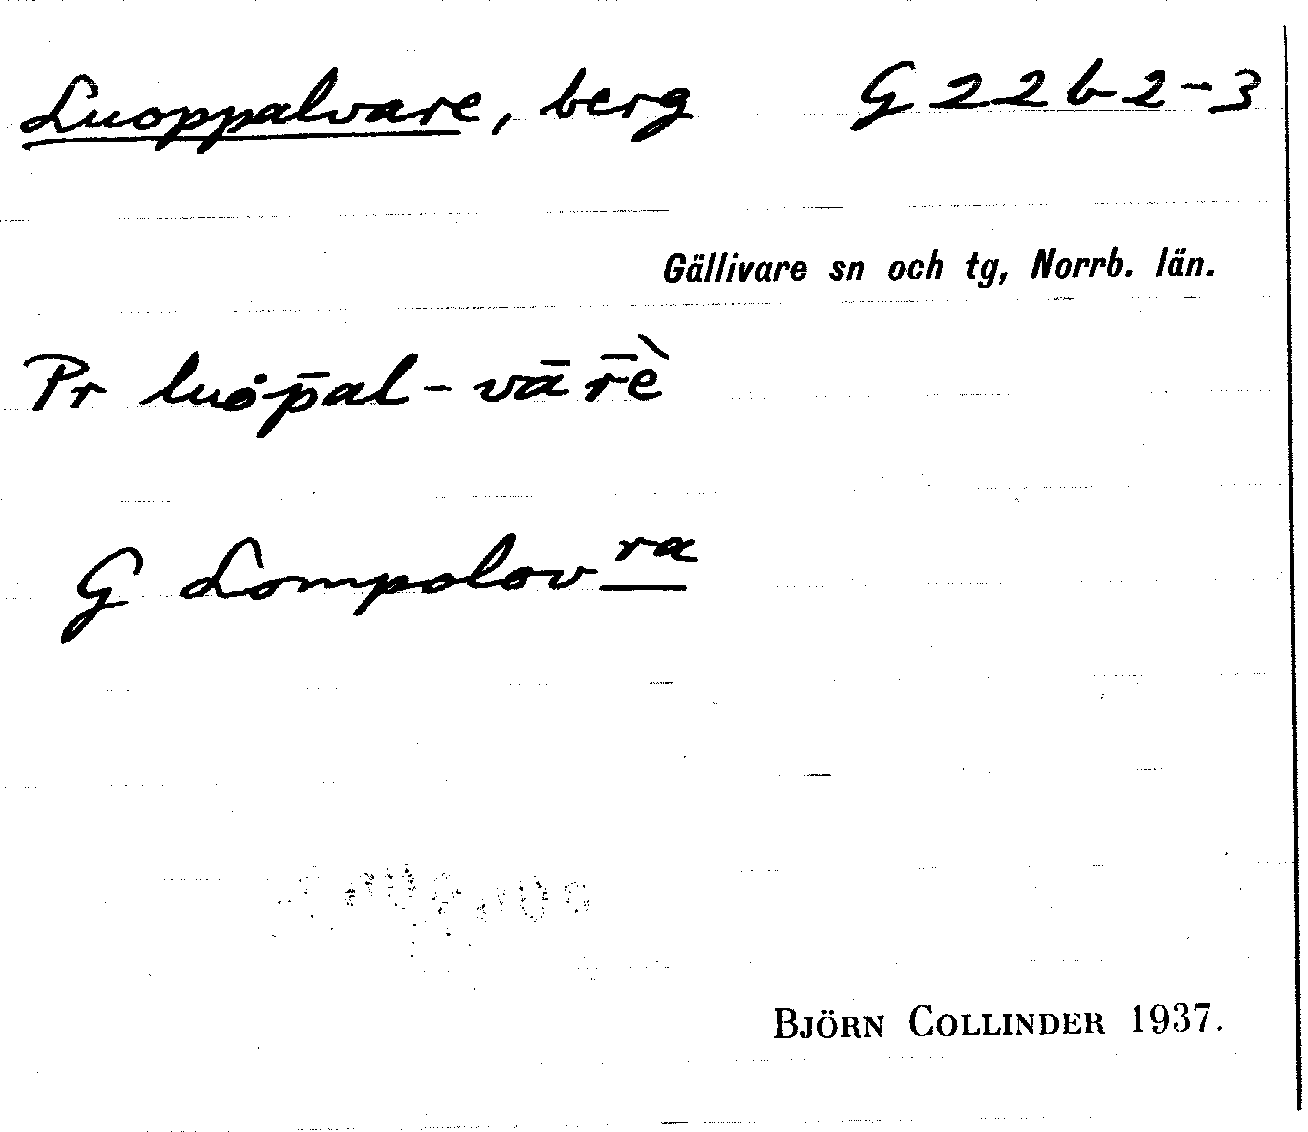 Luoppalvare, berg G 22 b 2-3
Gällivare sn och tg, Norrb. län.
Pr luȯp̄al-vār̄ὲ
G Lompolov ra
BJÖRN COLLINDER 1937.